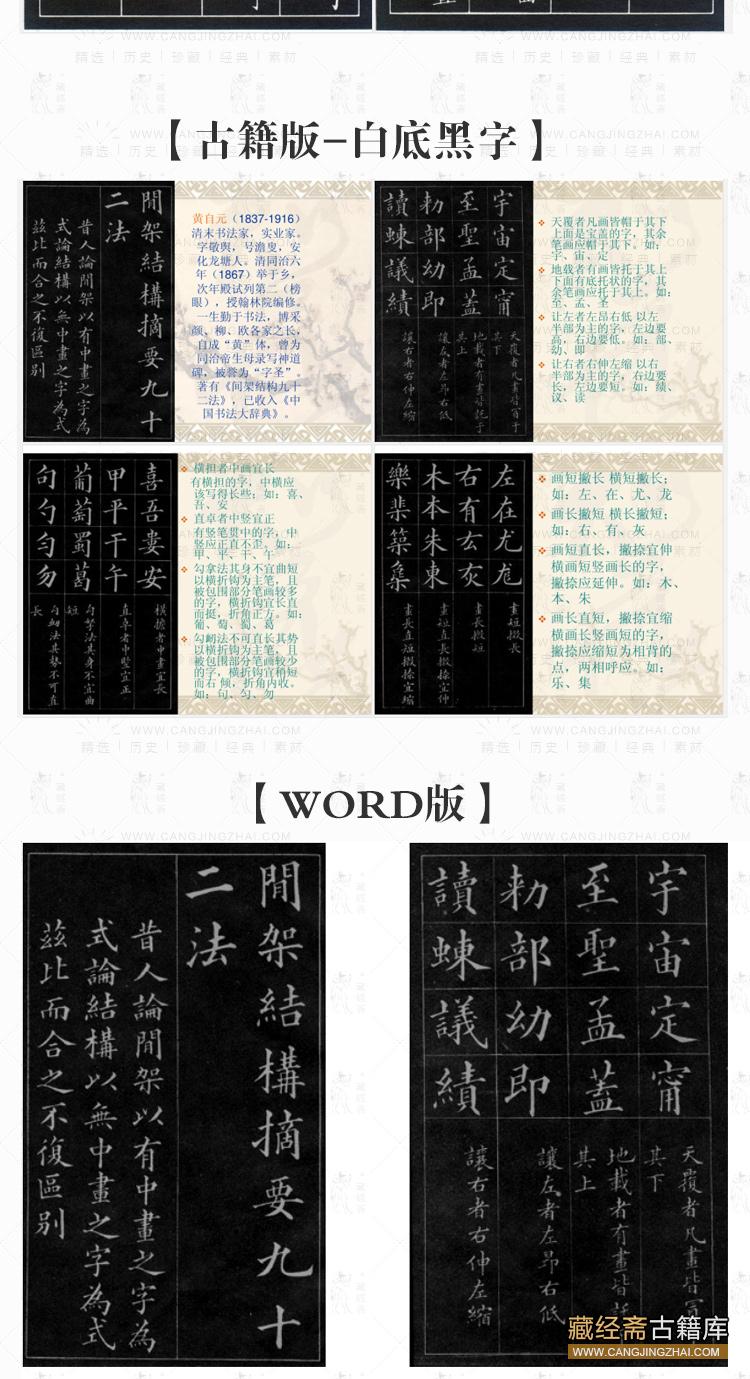 精选 | 历史 | 珍藏 | 经典 | 素材
【古籍版-白底黑字】
間架結構摘要九十
二法
昔人論間架以有中畫之字為
式論結構以無中畫之字為式
茲比而合之不復區别
黄自元（1837-1916）
清末书法家，实业家。
字敬舆，号澹叟，安
化龙塘人。清同治六
年（1867）举于乡，
次年殿试列第二（榜
眼），授翰林院编修。
一生勤于书法，博采
颜、柳、欧各家之长，
自成“黄”体，曾为
同治帝生母录写神道
碑，被誉为“字圣”。
著有《间架结构九十
二法》，已收入《中
国书法大辞典》。
宇宙定甯
至聖孟蓋
勑部幼即
讀蝀議績
天覆者凡畫皆冒于
其下
地載者有畫皆託于
其上
讓左者左昂右低
讓右者右伸左縮
天覆者凡画皆帽于其下
上面是宝盖的字，其余
笔画应帽于其下。如：
宇、宙、定
地载者有画皆托于其上
下面有底托状的字，其
余笔画应托于其上。如：
至、孟、圣
让左者左昂右低 以左
半部为主的字，左边要
高，右边要低。如：部、
幼、即
让右者右伸左缩 以右
半部为主的字，右边要
长，左边要短。如：绩、
议、读
喜吾婁安
甲平干午
葡萄蜀葛
句勺匀勿
橫擔者中畫宜長
直卓者中豎宜正
勾努法其身不宜曲
短
勾衂法其勢不可直
長
横担者中画宜长
有横担的字，中横应
该写得长些；如：喜、
吾、安
直卓者中竖宜正
有竖笔贯中的字，中
竖应正直不歪。如：
甲、平、干、午
勾拿法其身不宜曲短
以横折钩为主笔，且
被包围部分笔画较多
的字，横折钩宜长直
而挺，折角正方。如：
葡、萄、蜀、葛
勾衂法不可直长其势
以横折钩为主笔，且
被包围部分笔画较少
的字，横折钩宜稍短
而右倾，折角内收。
如：句、匀、勿
左在尤尨
右有厷灰
木本朱東
樂枼築集
畫短撇長
畫長撇短
畫短直長撇捺宜伸
畫長直短撇捺宜縮
画短撇长 横短撇长；
如：左、在、尤、龙
画长撇短 横长撇短；
如：右、有、灰
画短直长，撇捺宜伸
横画短竖画长的字，
撇捺应延伸。如：木、
本、朱
画长直短，撇捺宜缩
横画长竖画短的字，
撇捺应缩短为相背的
点，两相呼应。如：
乐、集
【WORD版】
間架結構摘要九十
二法
昔人論間架以有中畫之字為
式論結構以無中畫之字為式
茲比而合之不復區别
宇宙定甯
至聖孟蓋
勑部幼即
讀蝀議績
天覆者凡畫皆冒
其下
地載者有畫皆託
其上
讓左者左昂右低
讓右者右伸左縮
藏经斋古籍库
WWW.CANGJINGZHAI.COM